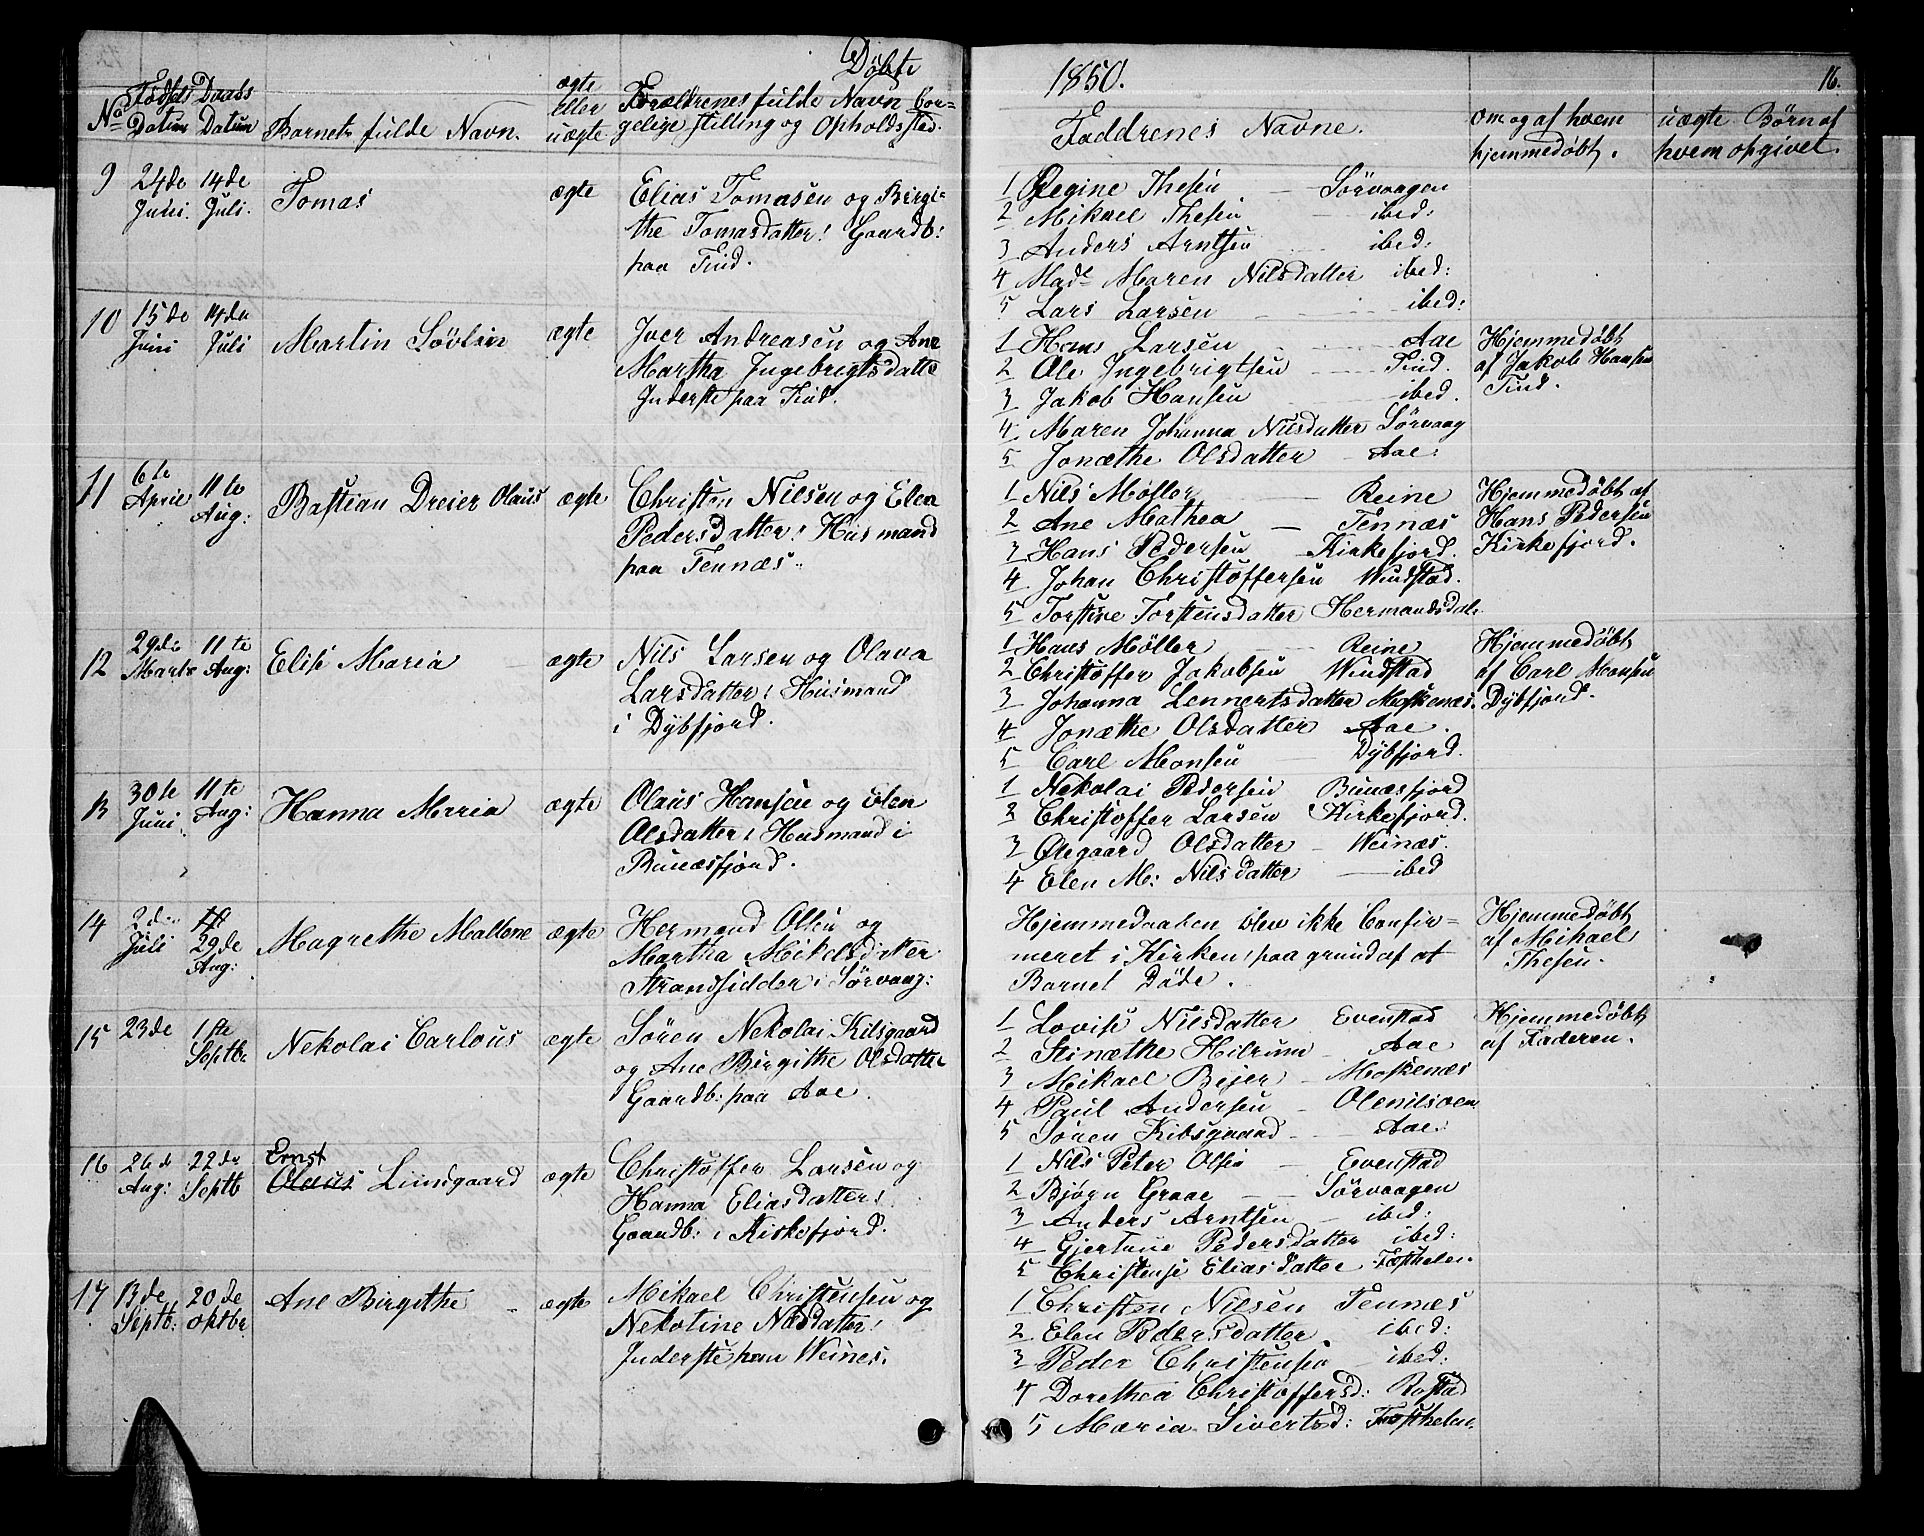 Døbte
1850.
16.
No Fødsels Datum Daabs Datum Barnets fulde Navn. ægte eller uægte Forældrenes fulde Navn borgelige stilling og Opholdssted.
Faddrenes Navne. om og af hvem hjemmedøbt. uægte Børn af hvem opgivet.
9 24de Juni. 14de Juli. Tomas ægte
Elias Tomasen og Birgi-
the Tomasdatter! Gaardb:
paa Tind.
1 Regine Thesen Sörvaagen
2 Mikael Thesen ibid:
3 Anders Arntsen ibed:
4 Madᵉ Maren Nilsdatter ibed:
5 Lars Larsen ibed:
10 15de Juni 14de Juli Martin Lövlin ægte
Iver Andreasen og Ane
Martha Ingebrigtsdatte
Inderste paa Tind.
1 Hans Larsen Aae
2 Ole Ingebrigtsen Tind.
3 Jakob Hansen ibed.
4 Maren Johanna Nilsdatter Sörvaag
5 Jonæthe Olsdatter Aae.
Hjemmedøbt
af Jakob Hansen
Tind.
11 6te April 11te Aug: Bastian Dreier Olaus ægte
Christen Nilsen og Elen
Pedersdatter! Husmand
paa Tennæs.
1 Nils Møller Reine
2 Ane Mathea Tennæs
3 Hans Pedersen Kirkefjord.
4 Johan Christoffersen Windstad.
5 Torstine Torstensdatter Hermandsdal.
Hjemmedøbt af
Hans Pedersen
Kirkefjord.
12 29de Marts 11te Aug: Elise Maria ægte
Nils Larsen og Olava
Larsdatter! Husmand
i Dybfjord.
1 Hans Møller Reine
2 Christoffer Jakobsen Windstad
3 Johanna Lennertsdatter Moskenæs.
4 Jonæthe Olsdatter Aae.
5 Carl Monsen Dybfjord.
Hjemmedøbt
af Carl Monsen
Dybfjord.
13 30te Juni 11te Aug: Hanna Maria ægte
Olaus Hansen og Elen
Olsdatter! Husmand i
Bunæsfjord.
1 Nekolai Pedersen Bunæsfjord
2 Christoffer Larsen Kirkefjord.
3 Olegaard Olsdatter Weinæs.
4 Elen M: Nilsdatter ibed
14 2de Juli 29de Aug: Magrethe Mallene ægte
Hermand Olsen og
Martha Mikelsdatter
Strandsidder i Sörvaag:
Hjemmedaaben blev ikke Confir-
meret i Kirken, paa grund af at
Barnet Döde.
Hjemmedøbt
af Mikael
Thesen.
15 23de 1ste Septbr Nekolai Carlous ægte
Sören Nekolai Kilsgaard
og Ane Birgithe Olsdatter
Gaardb: paa Aae.
1 Lovise Nilsdatter Evenstad
2 Stinæthe Hilrum Aae
3 Mikael Beyer Moskenæs
4 Paul Andersen Olenilsøen
5 Sören Kibsgaard Aae.
Hjemmedøbt
af Faderen.
16 26de Aug: 22de Septb Ernst
Olaus Lundgaard ægte
Christoffer Larsen og
Hanna Eliasdatter!
Gaardb: i Kirkefjord.
1 Nils Peter Olsen Evenstad
2 Bjørn Graae Sörvaagen
3 Anders Arntsen ibed:
4 Gjertine Pedersdatter ibed:
5 Christense Eliasdatter Festhelen
17 13de Septb: 20de oktbr Ane Birgithe ægte
Mikael Christensen og
Nekoline Nilsdatter!
Inderste paa Weines.
1 Christen Nilsen Tennæs
2 Elen Pedersdatter ibed:
3 Peder Christensen ibed:
4 Dorethea Christoffersd: Rostad
5 Maria Sivertsd: Festhelen.